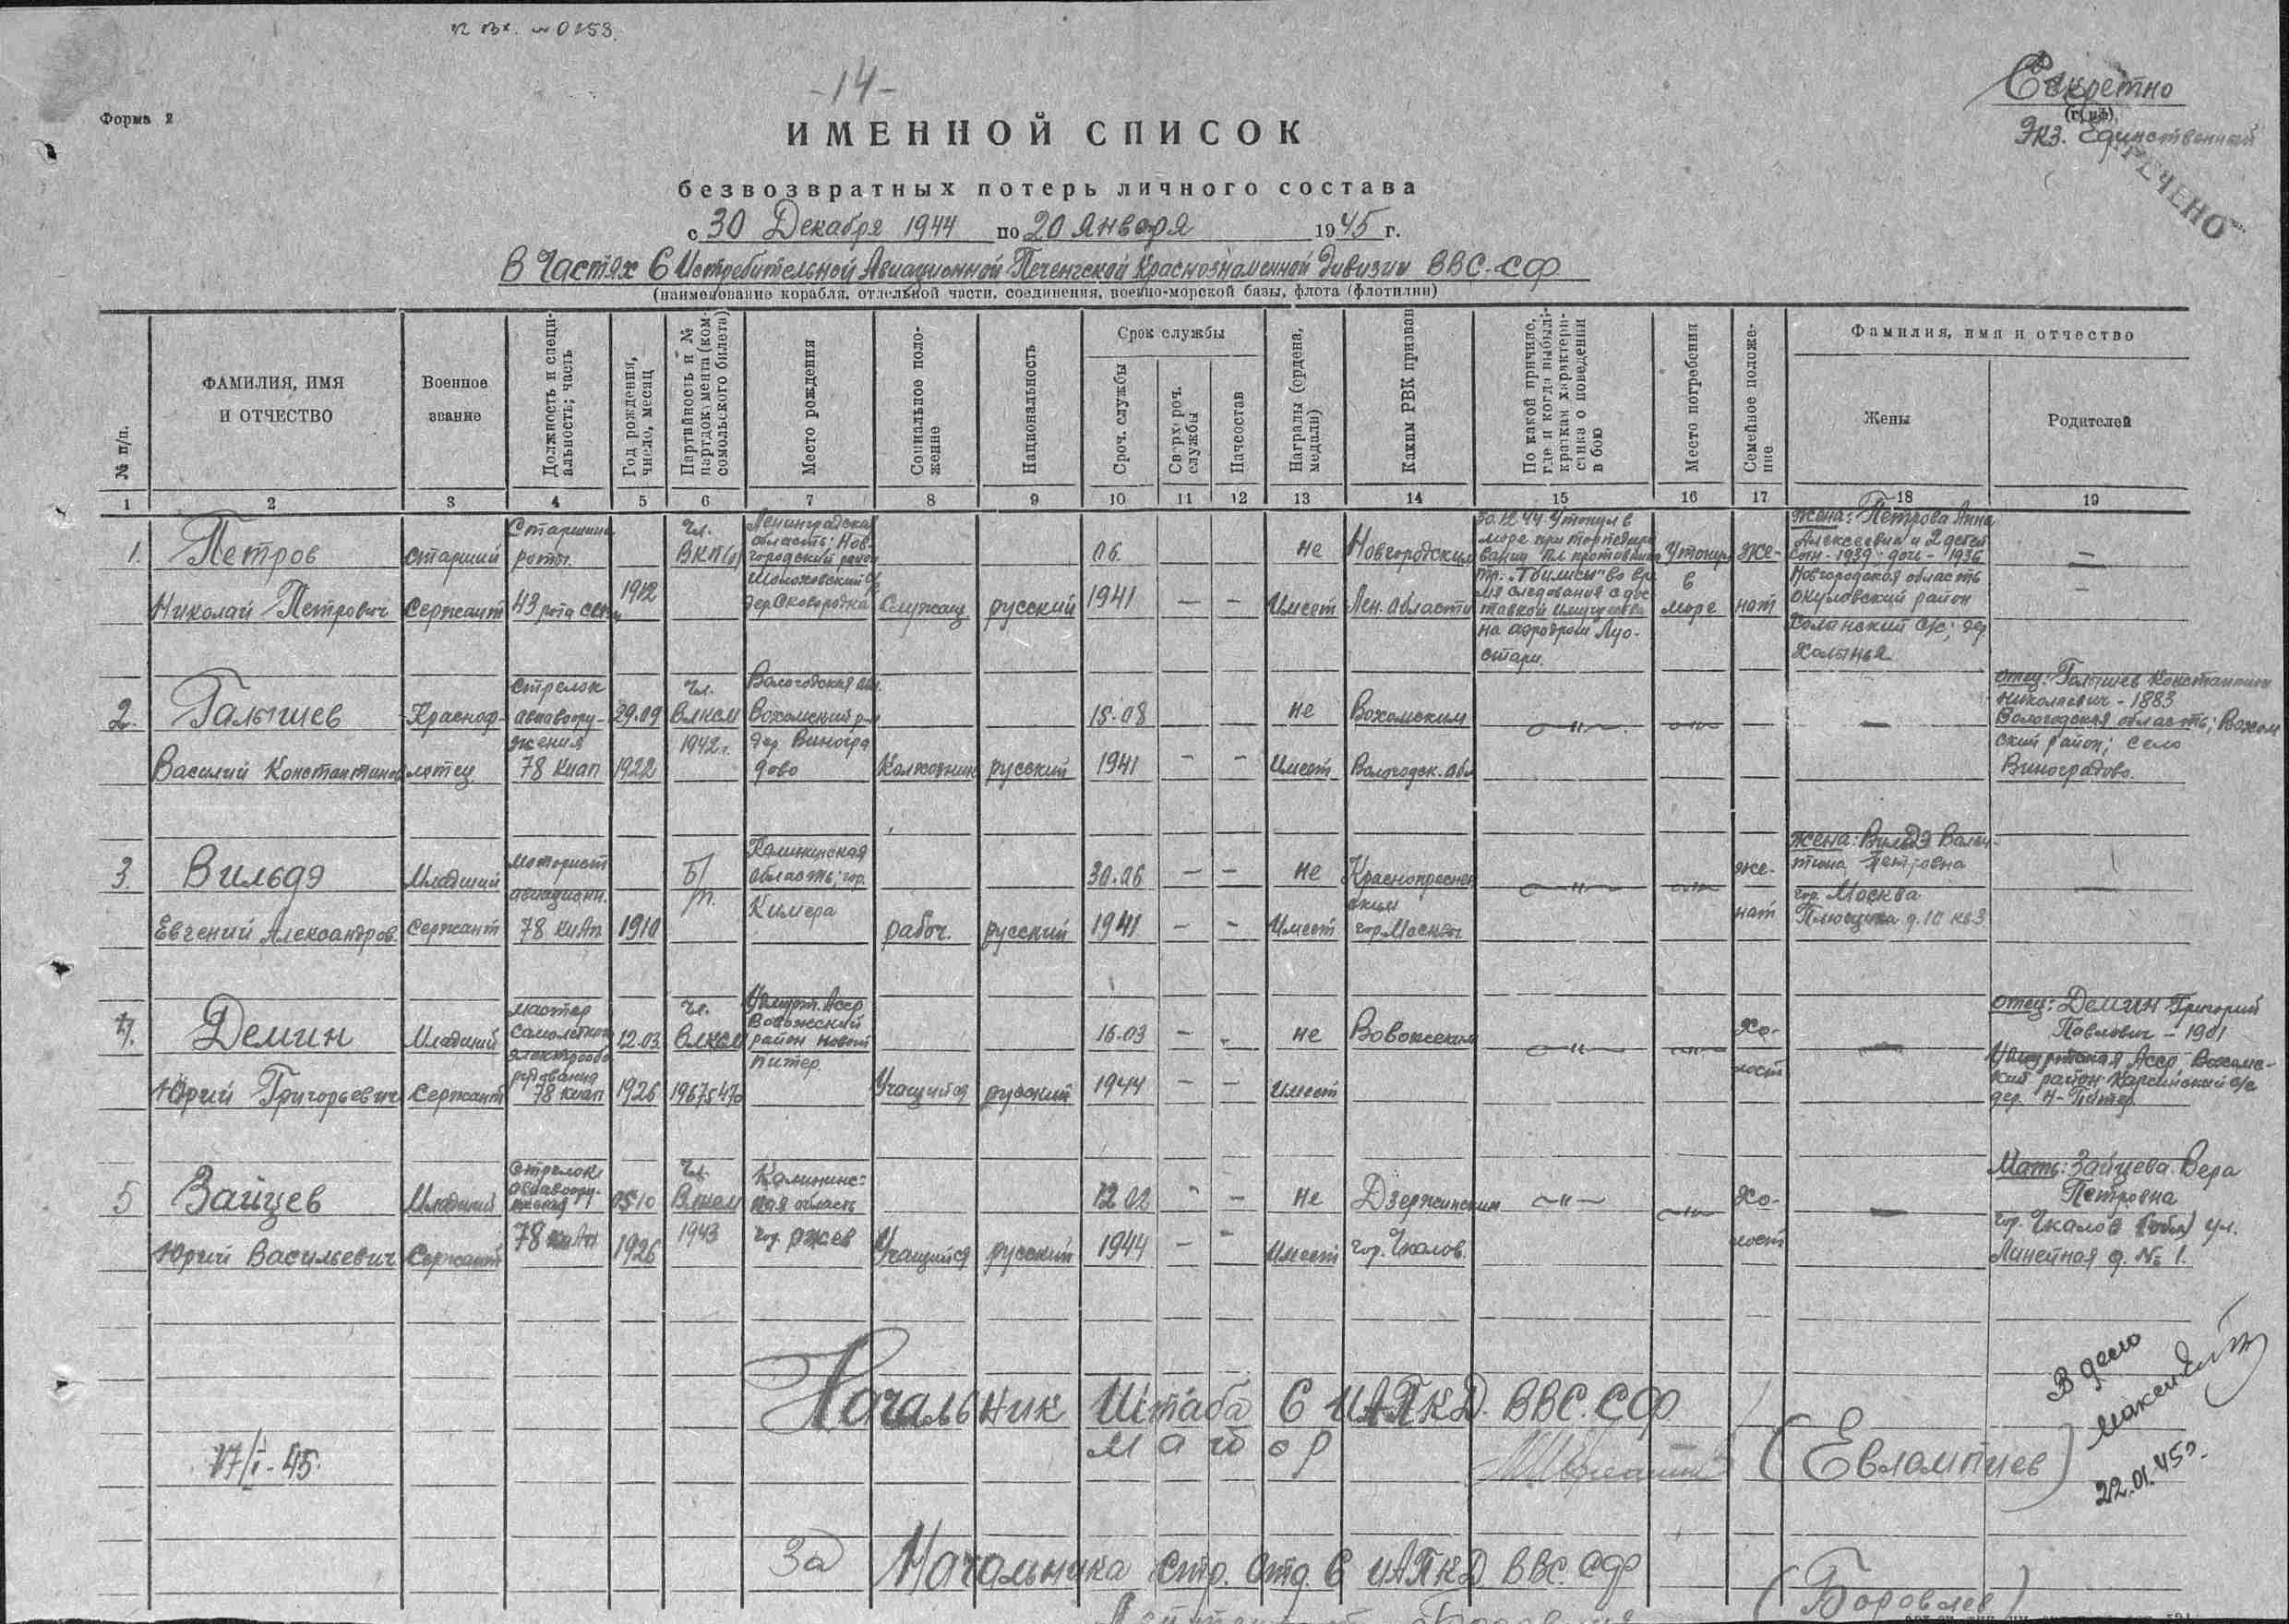 вх. №0153.
-14-
Секретно
(гриф)
Экз. Единственный
Форма 2
ИМЕННОЙ СПИСОК
безвозвратных потерь личного состава
с 30 Декабря 1944 по 20 января 1945 г.
В Частях 6 Истребительной Авиационной Печенгской Краснознаменной дивизии ВВС-СФ
(наименование корабля, отдельной части, соединения, военно-морской базы, флота (флотилии)
№ п/п.
ФАМИЛИЯ, ИМЯ
И ОТЧЕСТВО
Военное
звание
Должность и специ-
альность; часть
Год рождения,
число, месяц
Партийность и №
партдокумента (ком-
сомольского билета)
Место рождения
Социальное поло-
жение
Национальность
Срок службы
Сроч. службы
Сверхсроч.
службы
Начсостав
Награды (ордена,
медали)
Каким РВК призван
По какой причине,
где и когда выбыл;
краткая характери-
стика о поведении
в бою
Место погребения
Семейное положе-
ние
Фамилия, имя и отчество
Жены
Родителей
1 2 3 4 5 6 7 8 9 10 11 12 13 14 15 16 17 18 19
1.
Петров
Николай Петрович
старший
Сержант
Старшина
роты
43 рота связи
1912
Чл.
ВКП(б)
Ленинградская
область; Нов-
городский район
дер Сковородка
Служащ
русский
06.
1941
— —
не
Имеет
Новгородским
Лен. области
30.12.44 Утонул в
море при торпедиро
вании пл противника
тр. "Тбилиси" во вре
мя следования с дос
тавкой имущества
на аэродром Луо-
стари.
Утонул
в
море
Же-
нат
Жена: Петрова Анна
Алексеевна и 2 детей
сын-1939 дочь-1936
Новгородская область
окуловский район
с/с; дер
—
2.
Галышев
Василий Константинов
Красноф-
лотец
Стрелок
авиавоору-
жения
78 киап
29.09
1922
Чл.
ВЛКСМ
1942г.
Вологодская обл.
Вохомский р-н
дер Виногра
дово
Колхозник
русский
15.08
1941
— —
не
Имеет
Вохомским
Вологодск. обл
—"—
—"—
—
отец: Галышев Константин
Николаевич - 1883
Вологодская область; Вохом
ский район; село
Виноградово.
3.
Вильдэ
Евгений Александров.
Младший
Сержант
Моторист
авиационн.
78 киАп
1910
Б/п.
Калининская
область; гор.
Кимера
рабоч.
русский
30.06
1941
— —
не
Имеет
Краснопреснен
ским
гор. Москвы
—"—
—"—
же-
нат
жена: Вильдэ Вален-
тина Петровна
гор. Москва
Плющиха д. 10 кв3
—
4.
Демин
Юрий Григорьевич
Младший
Сержант
мастер
самолетного
электрообо
рудования
78 киап
12.03
1926
Чл.
ВЛКСМ
19675470
Удмурт. Асср
район новый
питер.
Учащийся
русский
16.03
1944
— —
не
Имеет
—"—
—"—
Хо-
лост
—
отец: Демин Григорий
Павлович - 1901
Удмуртская Асср
район с/с
дер. Н-Питер.
5
Зайцев
Юрий Васильевич
Младший
Сержант
Стрелок
авиавоору-
жения
78 киАп
05.10
1926
Чл.
Влксм
1943
Калининс-
кая область
гор. Ржев
Учащийся
русский
12.02
1944
— —
не
Имеет
Дзержинским
гор. Чкалов.
—"—
—"—
Хо-
лост
—
Мать: Зайцева Вера
Петровна
гор. Чкалов (обл) ул.
Линейная д. № 1.
Начальник Штаба 6 ИАПКД. ВВС. СФ
майор
(Евлампиев)
17/I-45.
В дело
22.01.45г.
За Начальника стр. отд. 6 ИАПКД ВВС. СФ